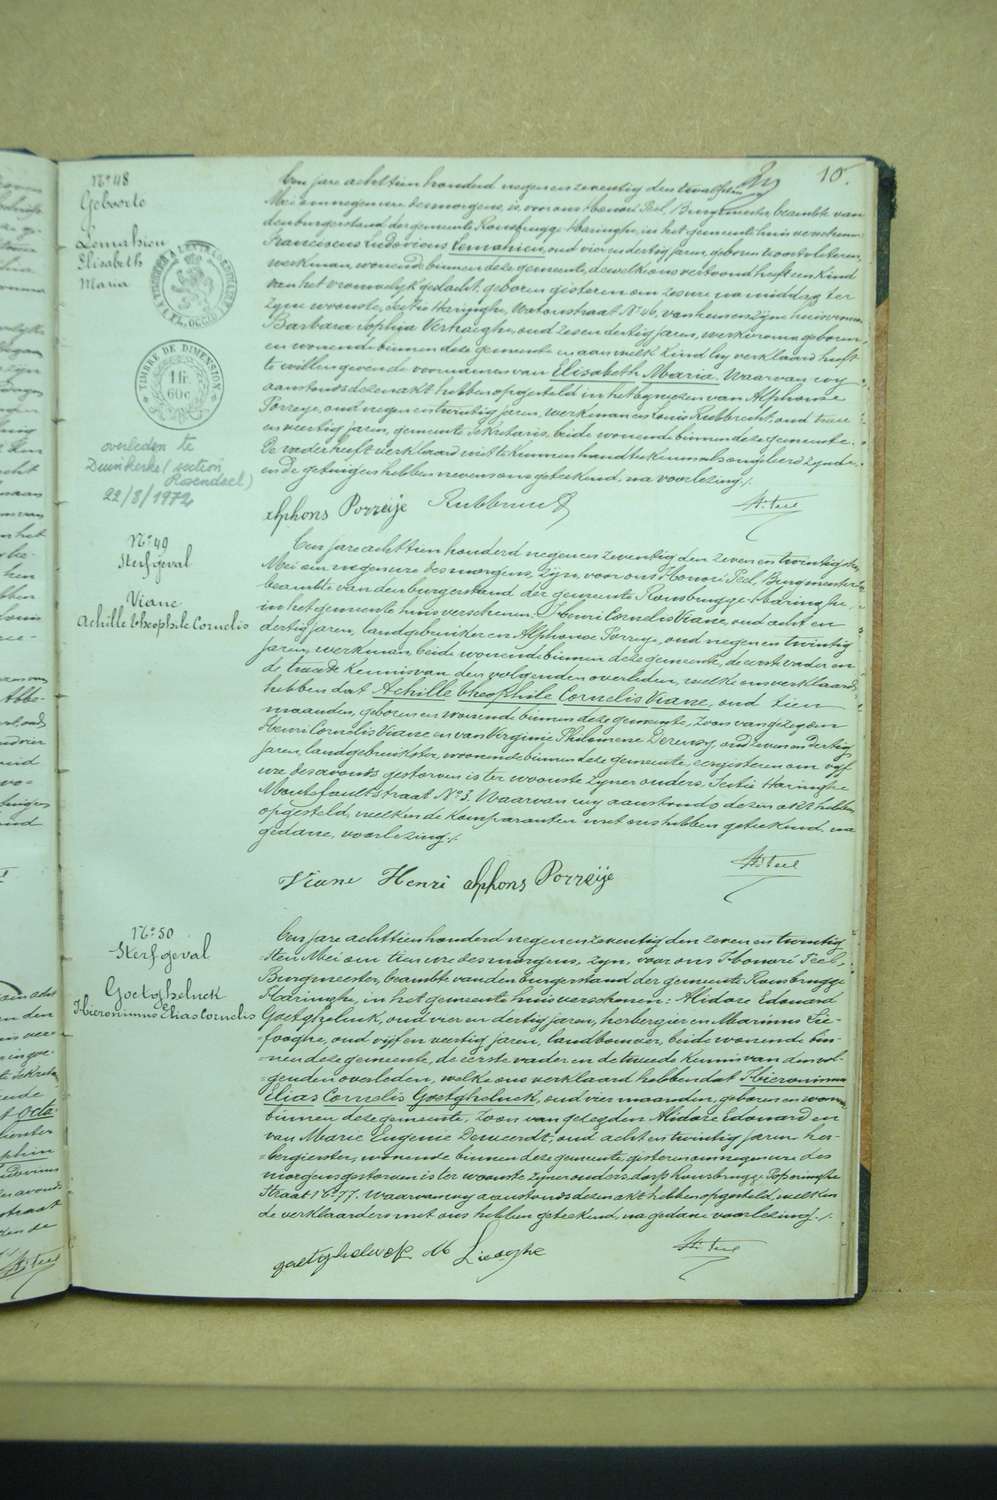 10.
N° 48
Geboorte
Lemahieu
Elisabeth
Maria
TIMBRE DE DIMENSION
1 fr.
60 c
overleden te
Duinkerke (section
Rosendael)
22/8/1972
Een jare achttien honderd negen en zeventig den twaalfsten
Mei om negen ure des morgens, is, voor ons Honoré Peel, Burgmeester, beambte van
den burgerstand der gemeente Rousbrugge-Haringhe, in het gemeente huis verschenen
Franciscus Ludovicus Lemahieu, oud vier en dertig jaren, geboren te Oostvleteren,
werkman, wonende binnen deze gemeente, dewelke ons vertoond heeft een kind
van het vrouwelijk geslacht, geboren gisteren om zes ure na middag ter
zijne woonste, Sectie Haringhe, Watoustraat N° 26, van hem en zijne huisvrouw
Barbara Sophia Verhaeghe, oud zes en dertig jaren, werkvrouw geboren
en wonende binnen deze gemeente en aan welk kind hij verklaard heeft
te willen geven de voornamen van Elisabeth Maria. Waarvan wij
aanstonds dezen akt hebben opgesteld in het bijwezen van Alphonse
Porreye, oud negen en twintig jaren, werkman en Louis Rubbrecht, oud twee
en veertig jaren, gemeente Sekretaris, beide wonende binnen deze gemeente.
De vader heeft verklaard niet te kunnen handteekenen als ongeleerd zijnde
en de getuigen hebben nevens ons geteekend, na voorlezing ./.
alphons Porreije Rubbrecht H. Peel
N° 49
Sterfgeval
Viane
Achille Theophile Cornelis
Een jare achttien honderd negen en zeventig den zeven en twintigsten
Mei om negen ure des morgens, zijn, voor ons Honoré Peel, Burgmeester
beambte van den burgerstand der gemeente Rousbrugge-Haringhe,
in het gemeente huis verschenen: Henri Cornelis Viane, oud acht en
dertig jaren, landgebruiker en Alphonse Porreye, oud negen en twintig
jaren, werkman, beide wonende binnen deze gemeente, de eerste vader en
de tweede kennis van den volgenden overleden, welke ons verklaard
hebben dat Achille Theophile Cornelis Viane, oud tien
maanden, geboren en wonende binnen deze gemeente, zoon van gezegden
Henri Cornelis Viane en van Virginie Philomene Deruwy, oud zeven en dertig
jaren, landgebruikster, wonende binnen deze gemeente, eergisteren om vijf
ure des avonds gestorven is ter woonste zijner ouders, Sectie Haringhe
Moutsfaultstraat N° 3. Waarvan wij aanstonds dezen akt hebben
opgesteld, welken de komparanten met ons hebben geteekend, na
gedane, voorlezing ./.
Viane Henri alphons Porreije H. Peel
N° 50
Sterfgeval
Goetghelnck
Hieronimus Elias Cornelis
Een jare achttien honderd negen en zeventig den zeven en twintig
sten Mei om tien ure des morgens, zijn, voor ons Honoré Peel,
Burgmeester, beambte van den burgerstand der gemeente Rousbrugge
Haringhe, in het gemeente huis verschenen: Alidore Edouard
Goetghelnck, oud vier en dertig jaren, herbergier en Marinus Lie-
fooghe, oud vijf en veertig jaren, landbouwer, beide wonende bin-
nen deze gemeente, de eerste vader en de tweede kennis van den vol-
genden overleden, welke ons verklaard hebben dat Hieronimus
Elias Cornelis Goetghelnck, oud vier maanden, geboren en wonende
binnen deze gemeente, zoon van gezegden Alidore Edouard en
van Marie Eugenie Deweerdt, oud acht en twintig jaren her-
bergierster, wonende binnen deze gemeente, gisteren om negen ure des
morgens gestorven is ter woonste zijner ouders, dorp Rousbrugge Poperinghe
Straat N° 77. Waarvan wij aanstonds dezen akt hebben opgesteld, welken
de verklaarders met ons hebben geteekend, na gedane voorlezing ./.
goetghelnck M Liefooghe H. Peel